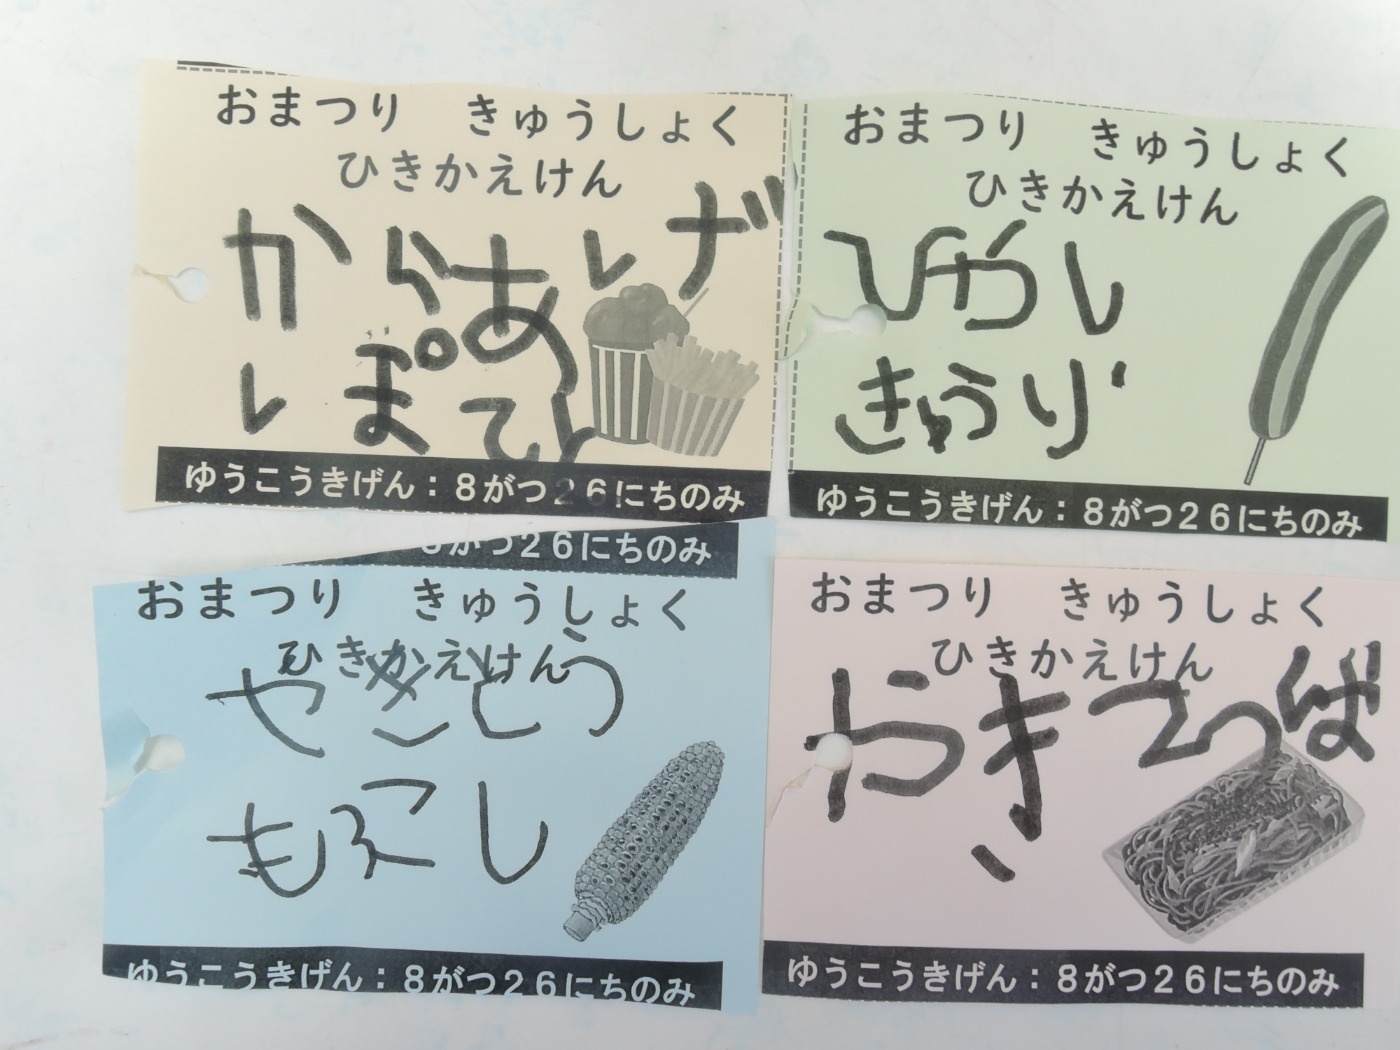 おまつり きゅうしょく
ひきかえけん
からあげ
ぽてと
ゆうこうきげん：8がつ26にちのみ
おまつり きゅうしょく
ひきかえけん
ひやし
きゅうり
ゆうこうきげん：8がつ26にちのみ
8がつ26にちのみ
おまつり きゅうしょく
ひきかえけん
やきとう
もろこし
ゆうこうきげん：8がつ26にちのみ
おまつり きゅうしょく
ひきかえけん
やきそば
ゆうこうきげん：8がつ26にちのみ